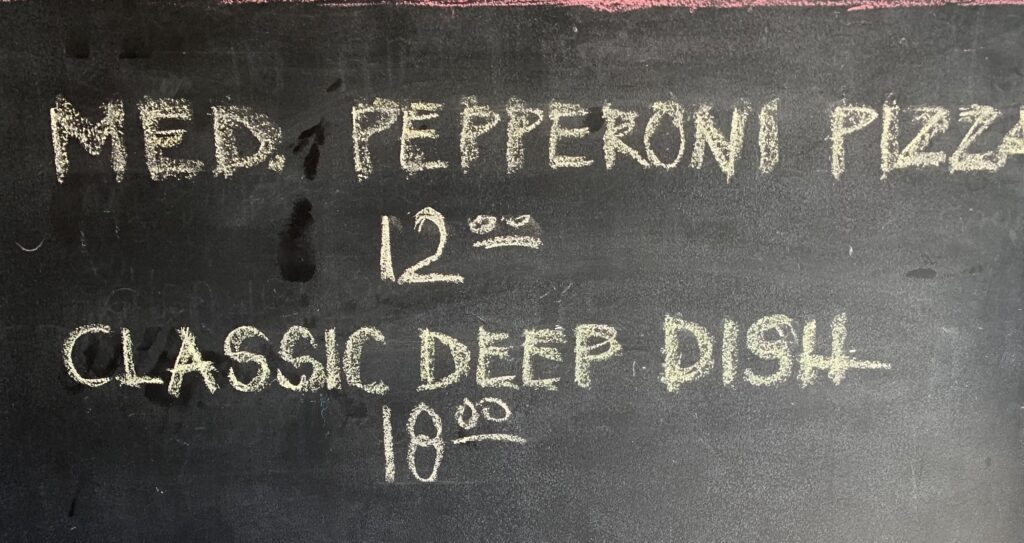 MED. PEPPERONI PIZZA
12 00
CLASSIC DEEP DISH
18 00